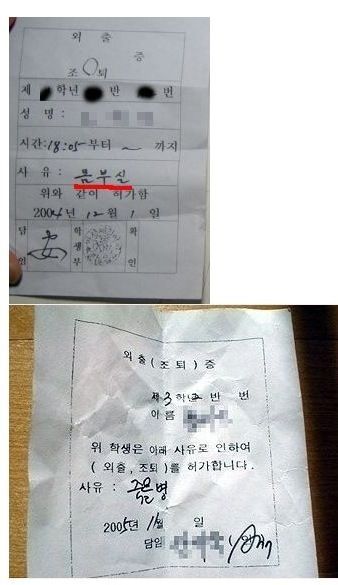 외출
증
조퇴
제 학년 반 번
성명 :
시간 : 18:05부터 ~ 까지
사유 : 몸부실
위와 같이 허가함
2004년 12월 1일
담임 학생부 확인
외출(조퇴)증
제3학년 반 번
이름
위 학생은 아래 사유로 인하여
(외출, 조퇴)를 허가합니다.
사유 : 죽을병
2005년 11월 일
담임